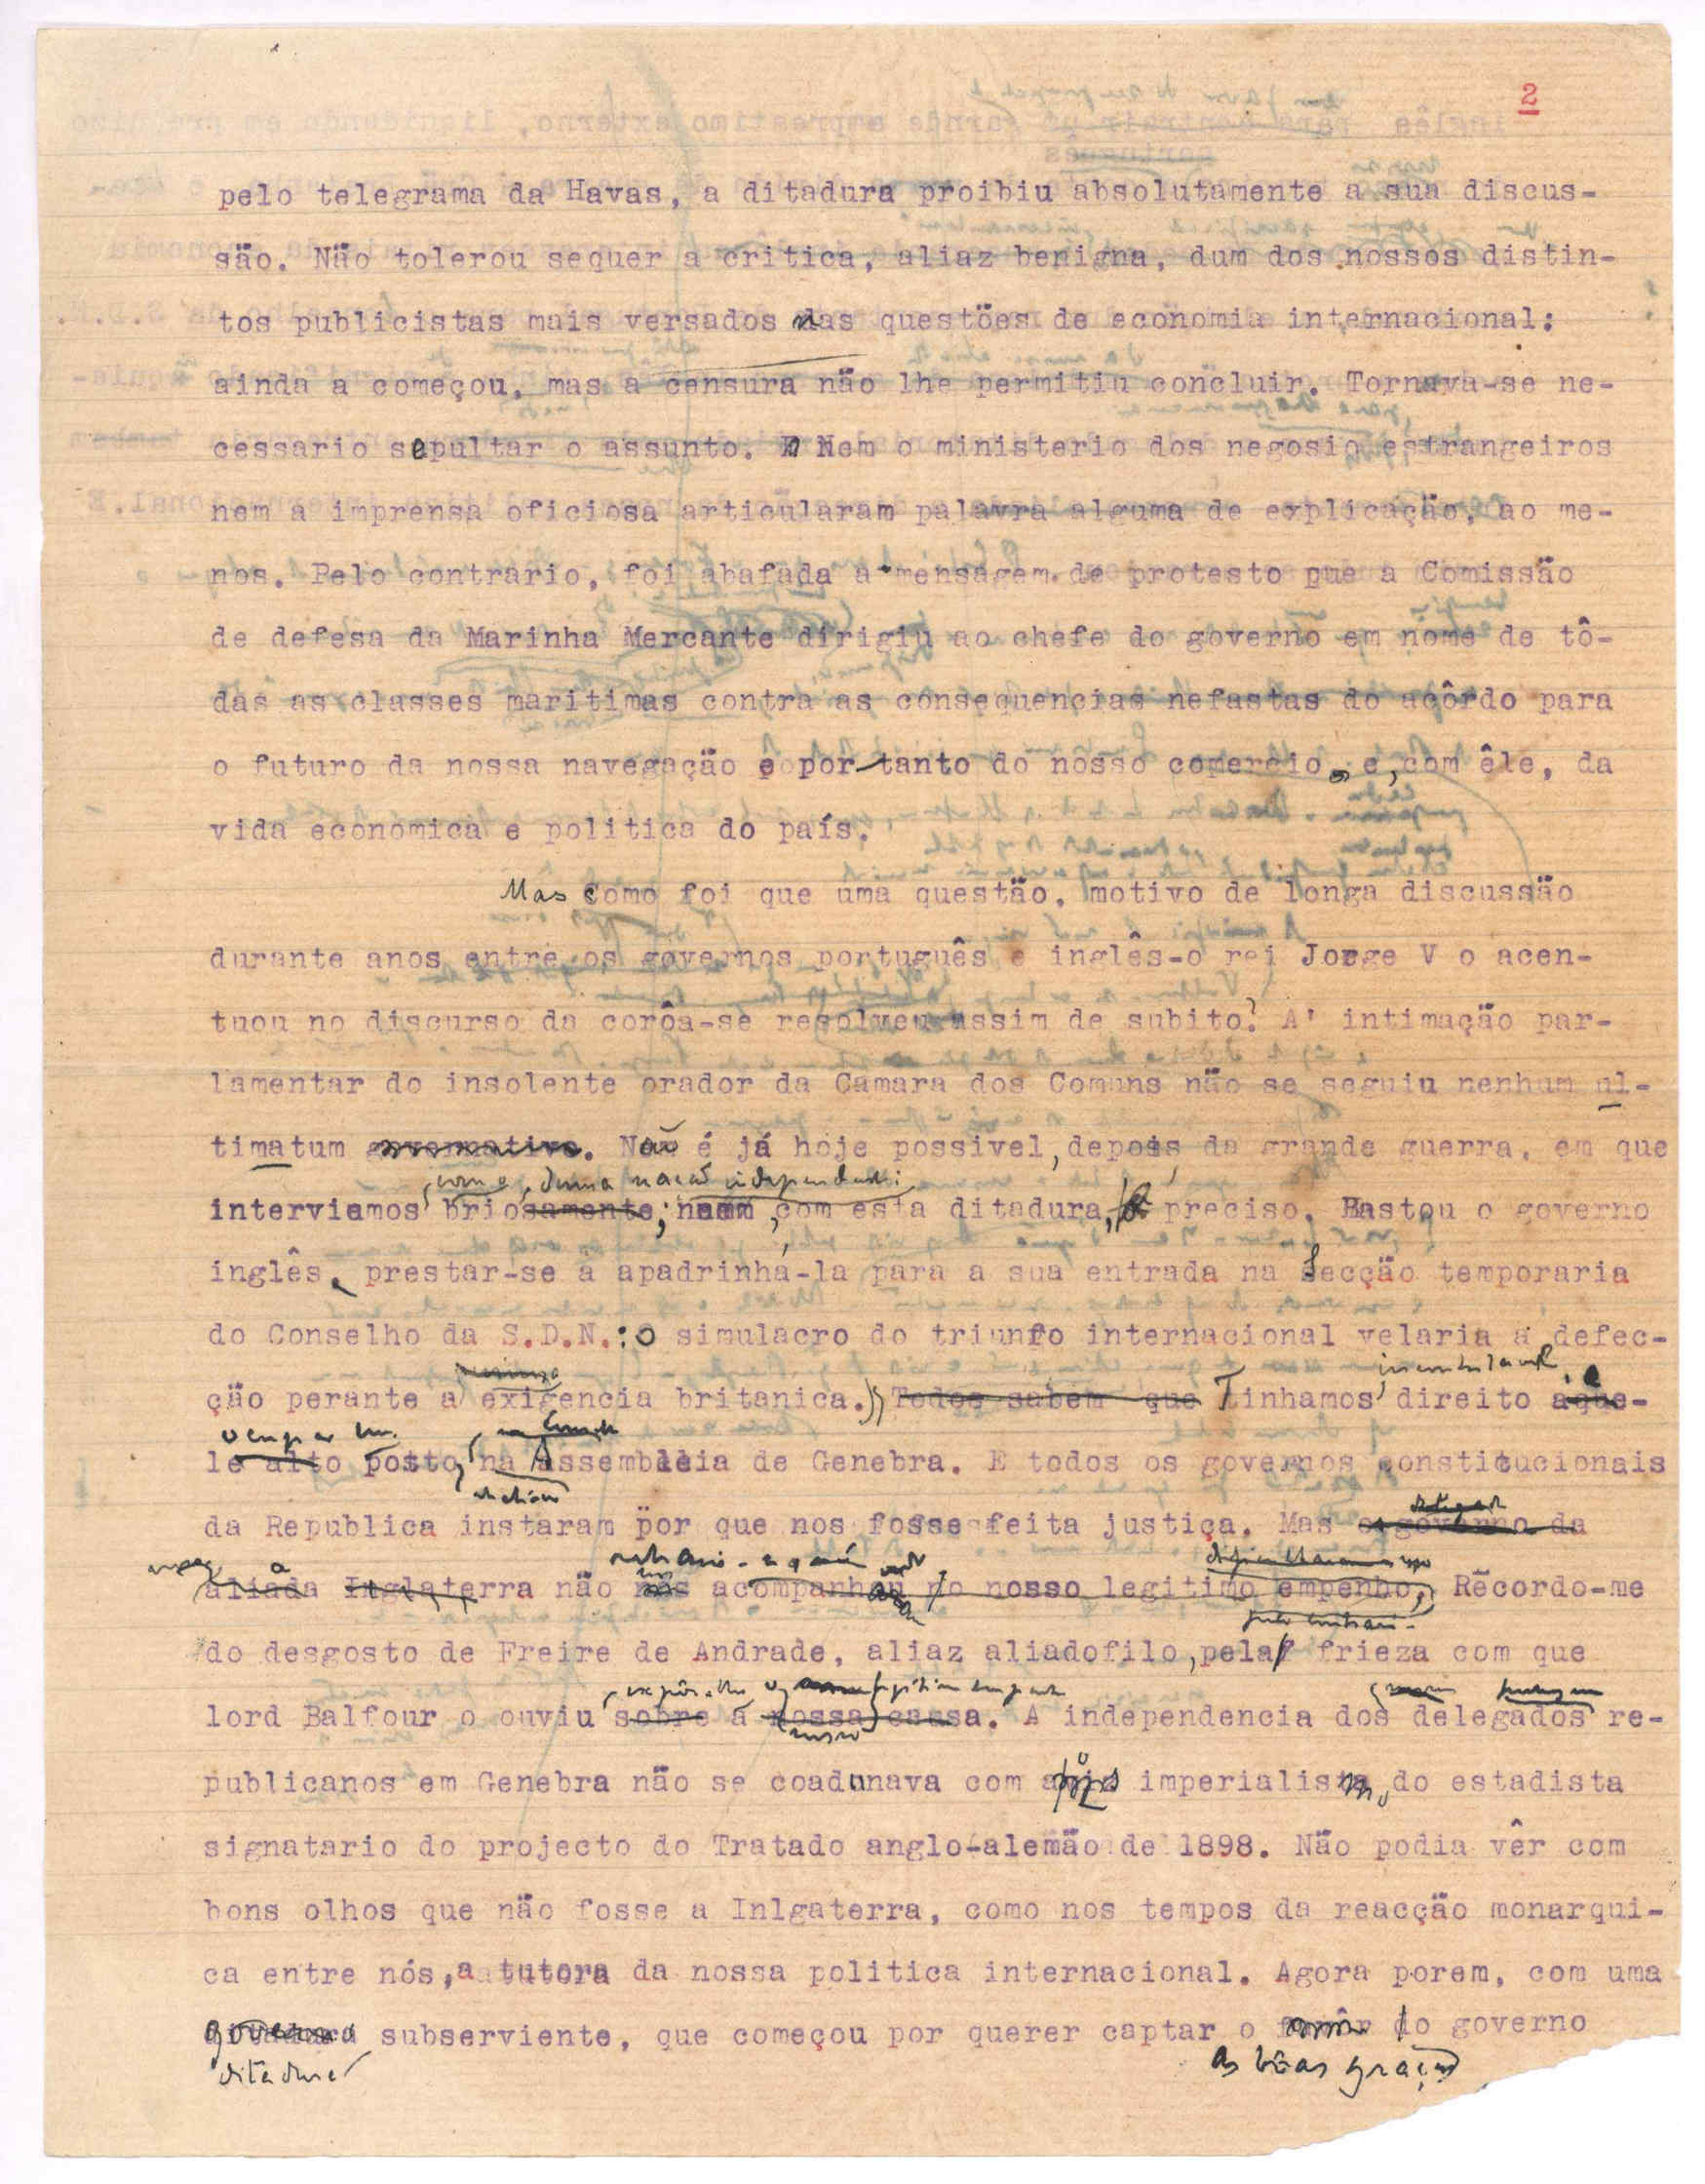 2
pelo telegrama da Havas, a ditadura proibiu absolutamente a sua discus-
são. Não tolerou sequer a critica, aliaz benigna, dum dos nossos distin-
tos publicistas mais versados nas questões de economia internacional:
ainda a começou, mas a censura não lhe permitiu concluir. Tornava-se ne-
cessario sepultar o assunto. Nem o ministerio dos negosio estrangeiros
nem a imprensa oficiosa articularam palavra alguma de explicação, ao me-
nos. Pelo contrario, foi abafada a mensagem de protesto que a Comissão
de defesa da Marinha Mercante dirigiu ao chefe do governo em nome de tô-
das as classes maritimas contra as consequencias nefastas do acôrdo para
o futuro da nossa navegação e por tanto do nosso comercio, e, com êle, da
vida economica e politica do país.
Mas como foi que uma questão, motivo de longa discussão
durante anos entre os governos português e inglês-o rei Jorge V o acen-
tuou no discurso da corôa-se resolveu assim de subito? A' intimação par-
lamentar do insolente orador da Camara dos Comuns não se seguiu nenhum ul-
timatum governativo. Não é já hoje possivel, depois da grande guerra, em que
, como , duma nação independente;
interviemos briosamente; nem, com esta ditadura, é preciso. Bastou o governo
inglês prestar-se a apadrinhá-la para a sua entrada na secção temporaria
do Conselho da S.D.N.: o simulacro do triunfo internacional velaria a defec-
incontestavel
ção perante a exigencia britanica. Todos sabem que Tinhamos direito a aque-
ocupar um
le alto posto, na Assembleia de Genebra. E todos os governos constitucionais
da Republica instaram por que nos fosse feita justiça. Mas o governo da
aliada Inglaterra não nos acompanhou no nosso legitimo empenho, Recordo-me
pelo contrario.
do desgosto de Freire de Andrade, aliaz aliadofilo, pela frieza com que
lord Balfour o ouviu sobre a nossa causa. A independencia dos delegados re-
nosso
publicanos em Genebra não se coadunava com imperialismo do estadista
signatario do projecto do Tratado anglo-alemão de 1898. Não podia vêr com
bons olhos que não fosse a Inlgaterra, como nos tempos da reacção monarqui-
ca entre nós, a tutora da nossa politica internacional. Agora porem, com uma
governo subserviente, que começou por querer captar o amôr do governo
ditadura as bôas graças